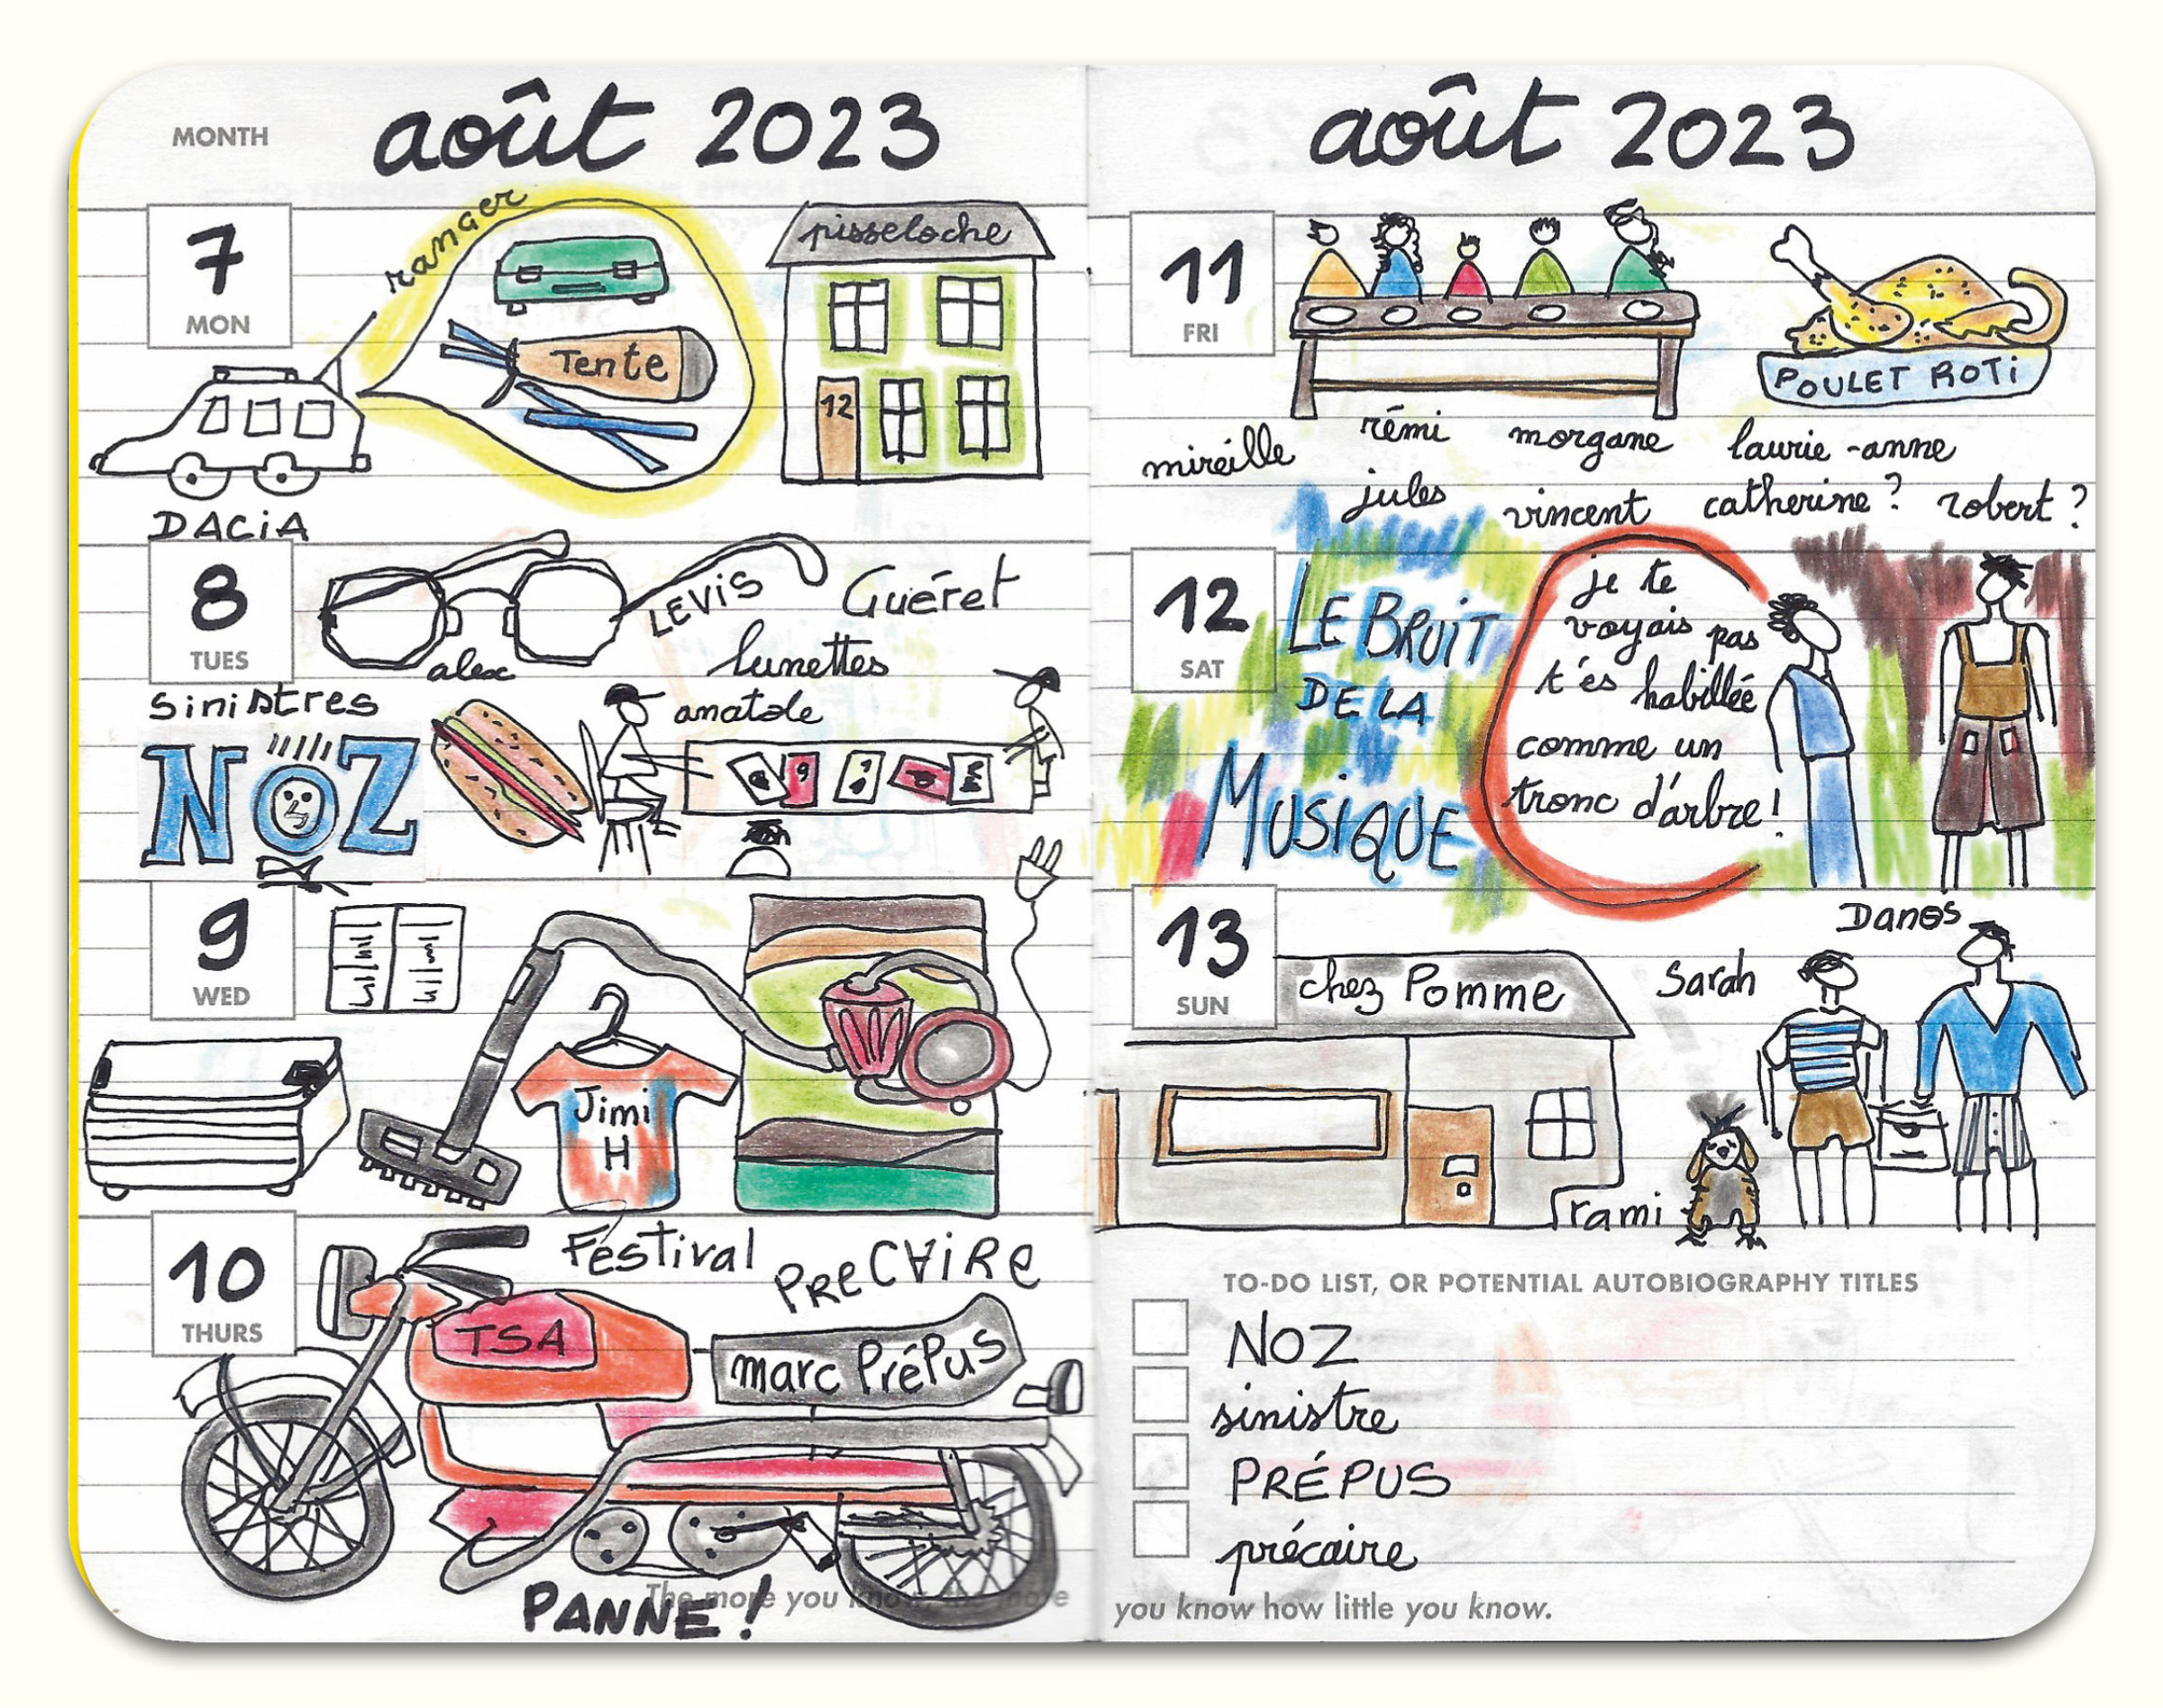 MONTH
août 2023
7
MON
ranger
Tente
pisseloche
12
DACIA
8
TUES
LEVIS
Guéret
alex
lunettes
sinistres
anatole
NOZ
9
WED
Jimi
H
10
THURS
Festival
PReCAIRe
TSA
marc PréPus
PANNE!
The more you know, the more
août 2023
11
FRI
POULET ROTI
mireille
rémi
morgane
laurie-anne
jules
vincent
catherine?
robert?
12
SAT
LE BRUIT
DE LA
MUSIQUE
je te
voyais pas
t'es habillée
comme un
tronc d'arbre!
13
SUN
chez Pomme
Sarah
Danos
rami
TO-DO LIST, OR POTENTIAL AUTOBIOGRAPHY TITLES
NOZ
sinistre
PRÉPUS
précaire
you know how little you know.